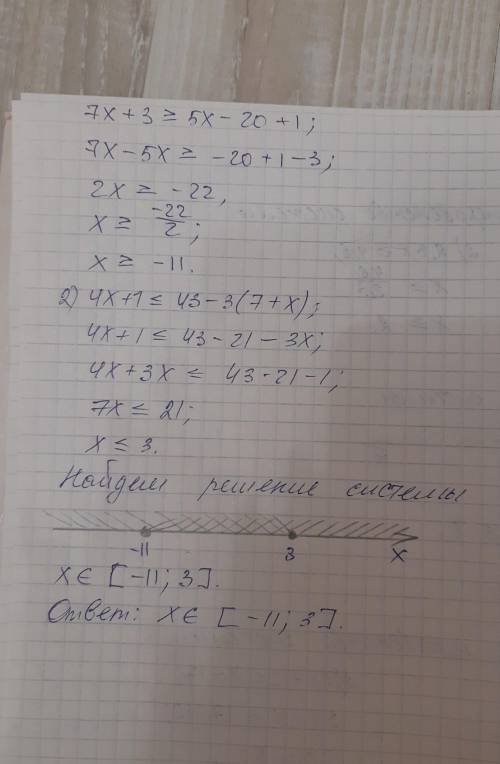 7x + 3 ≥ 5x - 20 + 1;
7x - 5x ≥ -20 + 1 - 3;
2x ≥ -22,
x ≥ -22/2;
x ≥ -11.
2) 4x + 1 ≤ 43 - 3(7 + x);
4x + 1 ≤ 43 - 21 - 3x;
4x + 3x ≤ 43 - 21 - 1;
7x ≤ 21;
x ≤ 3.
Найдем решение системы
-11 3 x
x ∈ [-11; 3].
Ответ: x ∈ [-11; 3].